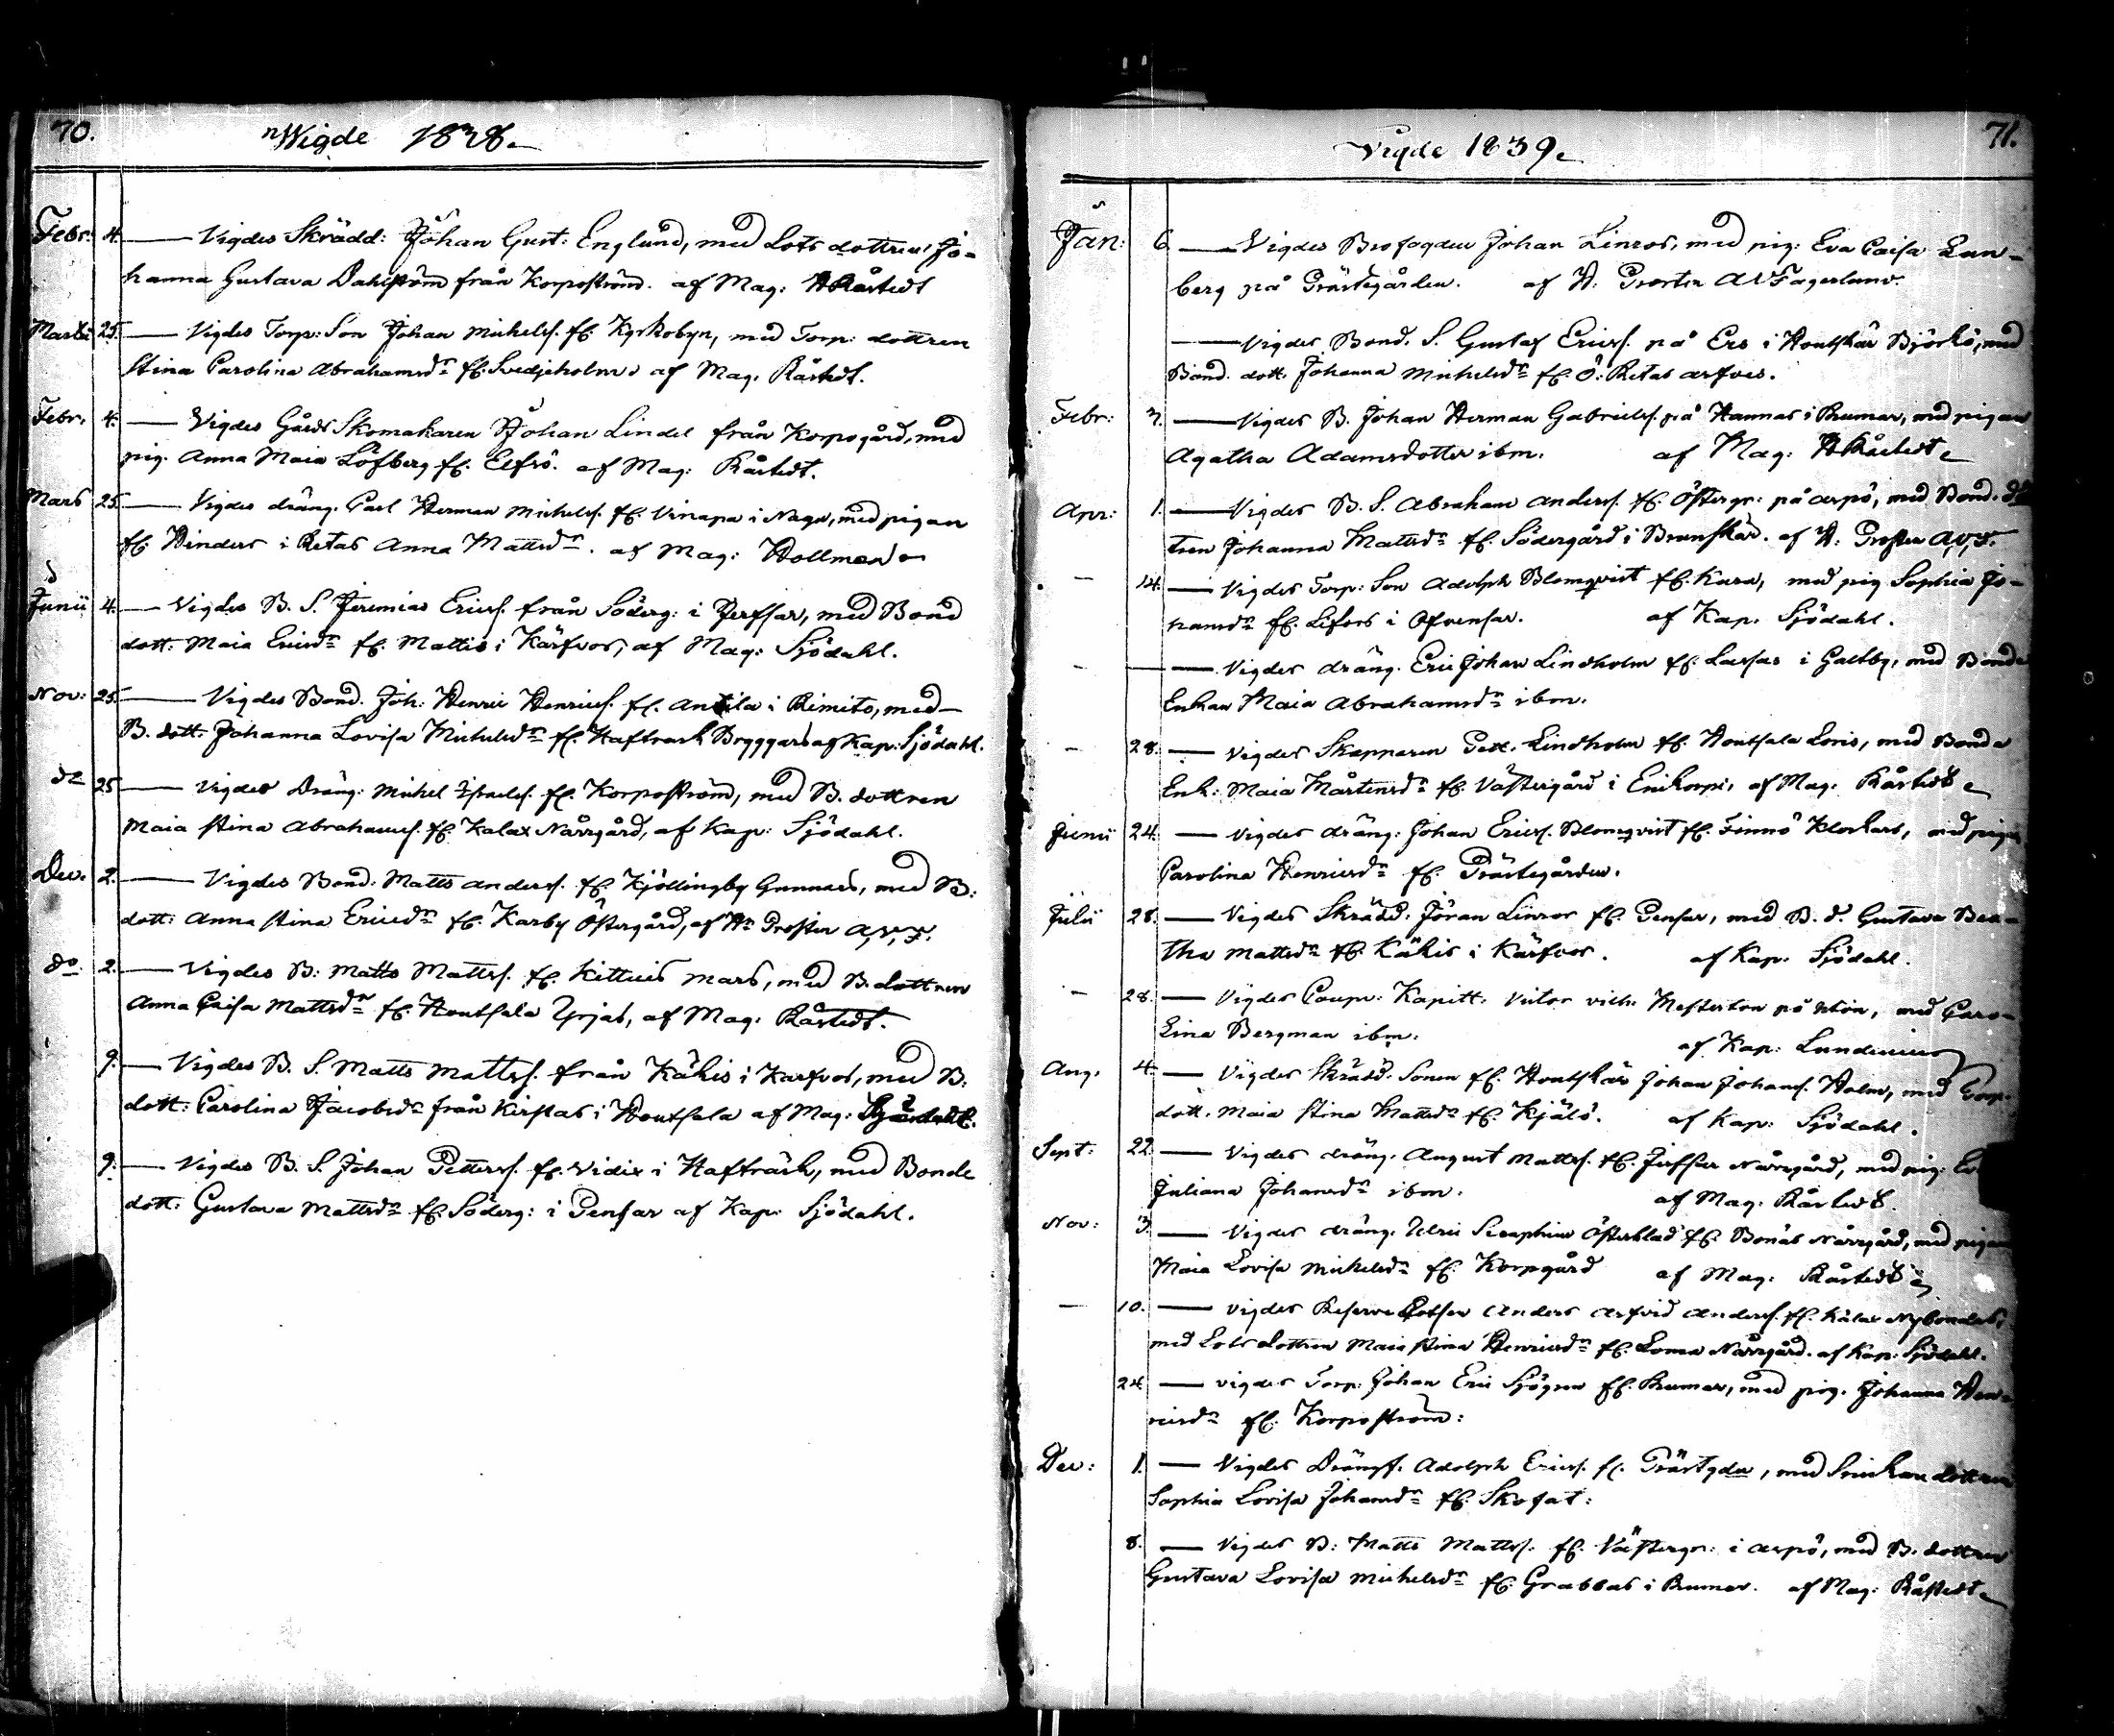 70.
Wigde 1838.
Febr: 4. Vigdes Skrädd: Johan Gust: Englund, med Lots dottren Jo-
hanna Gustava Dahlström från Korpoström. af Mag: Råstedt
Martii 25. Vigdes Torp: Son Johan Michelss. fr. Kyrkobyn, med Torp: dottren
Stina Carolina Abrahamsdr fr. Svedjeholm af Mag. Råstedt.
Febr. 4. Vigdes Gårds Skomakaren Johan Lindel från Korpogård, med
pig. Anna Maia Löfberg fr. Elfsö. af Mag: Råstedt.
Mars 25. Vigdes dräng. Carl Herman Michelss. fr. Vinapa i Nagu, med pigan
fr. Hinders i Retas Anna Mattsdr. af Mag: Hollmen
Junii 4. Vigdes B. S. Jeremias Ericss. från Söderg: i Jerfsar, med Bond
dott. Maia Ericsdr fr. Mattis i Kärfvos, af Mag: Sjödahl.
Nov: 25. Vigdes Bond. Joh: Henric Henricss. fr. Antila i Rimito, med
B. dott. Johanna Lovisa Michelsdr fr. Haftrask Bryggars af Kap: Sjödahl.
do 25 Vigdes Dräng: Michel Israelss. fr. Korpoström, med B. dottren
Maia Stina Abrahamss. fr. Kalax Närrgård, af Kap: Sjödahl.
Dec. 2. Vigdes Bond: Matts Anderss. fr. Kjöllingby Gunnars, med B:
dott: Anna Stina Ericsdr fr. Karby Östergård, af Hr Prosten A, V, F.
do. 2. Vigdes B: Matts Mattss. fr. Kittuis Mars, med B. dottren
Anna Caisa Mattsdr fr. Houtsala Yrjas, af Mag: Råstedt.
9. Vigdes B. S. Matts Mattss. från Kähis i Karfvos, med B.
dott: Carolina Jacobsdr från Kirstas i Houtsala af Mag:
9. Vigdes B. S. Johan Petterss. fr. Vidix i Hafträsk, med Bonde
dott: Gustava Mattsdr fr. Söderg: i Pensar af Kap: Sjödahl.
71.
Vigde 1839.
Jan: 6. Vigdes Brofogden Johan Linros, med pig: Eva Caisa Lun-
berg på Prästegården. af H: Prosten A V Fagerlund.
Vigdes Bond. S. Gustaf Ericss. på Ers i Houtskär Björkö, med
Bond. dott. Johanna Michelsdr fr. Ö: Retas arfves.
Febr: 3. Vigdes B. Johan Herman Gabrielss. på Hannas i Rumar, med pigan
Agatha Adamsdotter ibm. af Mag: Råstedt
Apr: 1. Vigdes B. S. Abraham Anderss. fr. Östergr: på Aspö, med Bond. dot
tren Johanna Mattsdr fr. Södergård i Brunskär. af H: Prosten A, V, F.
– 14. Vigdes Torp: Son Adolph Blomqvist fr. Kara, med pig Sophia Jo-
hansdr fr. Lefors i Ofvensar. af Kap. Sjödahl.
– Vigdes dräng. Eric Johan Lindholm fr. Lassas i Galtby, med Bonde
Enkan Maia Abrahamsdr ibm.
– 28. Vigdes Skepparen Pett. Lindholm fr. Houtsala Loris, med Bonde
Enk: Maia Mårtensdr fr. Västergård i Enikorpi, af Mag: Råstedt
Junii 24. Vigdes dräng: Johan Ericss. Blomqvist fr. Finnö Klockars, med pigan
Carolina Henricsdr fr. Prästegården.
Julii 28. Vigdes Skrädd. Jöran Linros fr. Pensar, med B. d. Gustava Bea-
tha Mattsdr fr. Kähis i Kärfvos. af Kap. Sjödahl.
– 28. Vigdes Coupv: Kapitt: Victor Vilh: Mesterton på Utön, med Caro-
Lina Bergman ibm. af Kap: Lundenius
Aug. 4. Vigdes Skrädd. Sonen fr. Houtskär Johan Johanss. Holm, med Torp.
dott. Maia Stina Mattsdr fr. Kjälö. af Kap: Sjödahl.
Sept: 22. Vigdes dräng. August Mattss. fr. Jerfsar Närrgård, med pig: Ev
Juliana Johansdr ibm. af Mag: Råstedt.
Nov: 3. Vigdes dräng. Ulric Seraphim Österblad fr. Bonäs Närrgård, med pigan
Maia Lovisa Michelsdr fr. Korpogård af Mag: Råstedt
– 10. Vigdes Reserve Lotsen Anders Arfvid Anderss. fr. Kalax Nybondas,
med Lots dottren Maia Stina Henricsdr fr. Loma Närrgård. af Kap: Sjödahl.
24. Vigdes Torp: Johan Eric Sjögren fr. Rumar, med pig. Johanna Hen-
ricsdr fr. Korpoström:
Dec: 1. Vigdes Drängs. Adolph Ericss. fr. Prästgdn, med dottren
Sophia Lovisa Johansdr fr. Skofat:
8. Vigdes B: Matts Mattss. fr. Västergr: i Aspö, med B. dottren
Gustava Lovisa Michelsdr fr. Grabbas i Rumar. af Mag: Råstedt